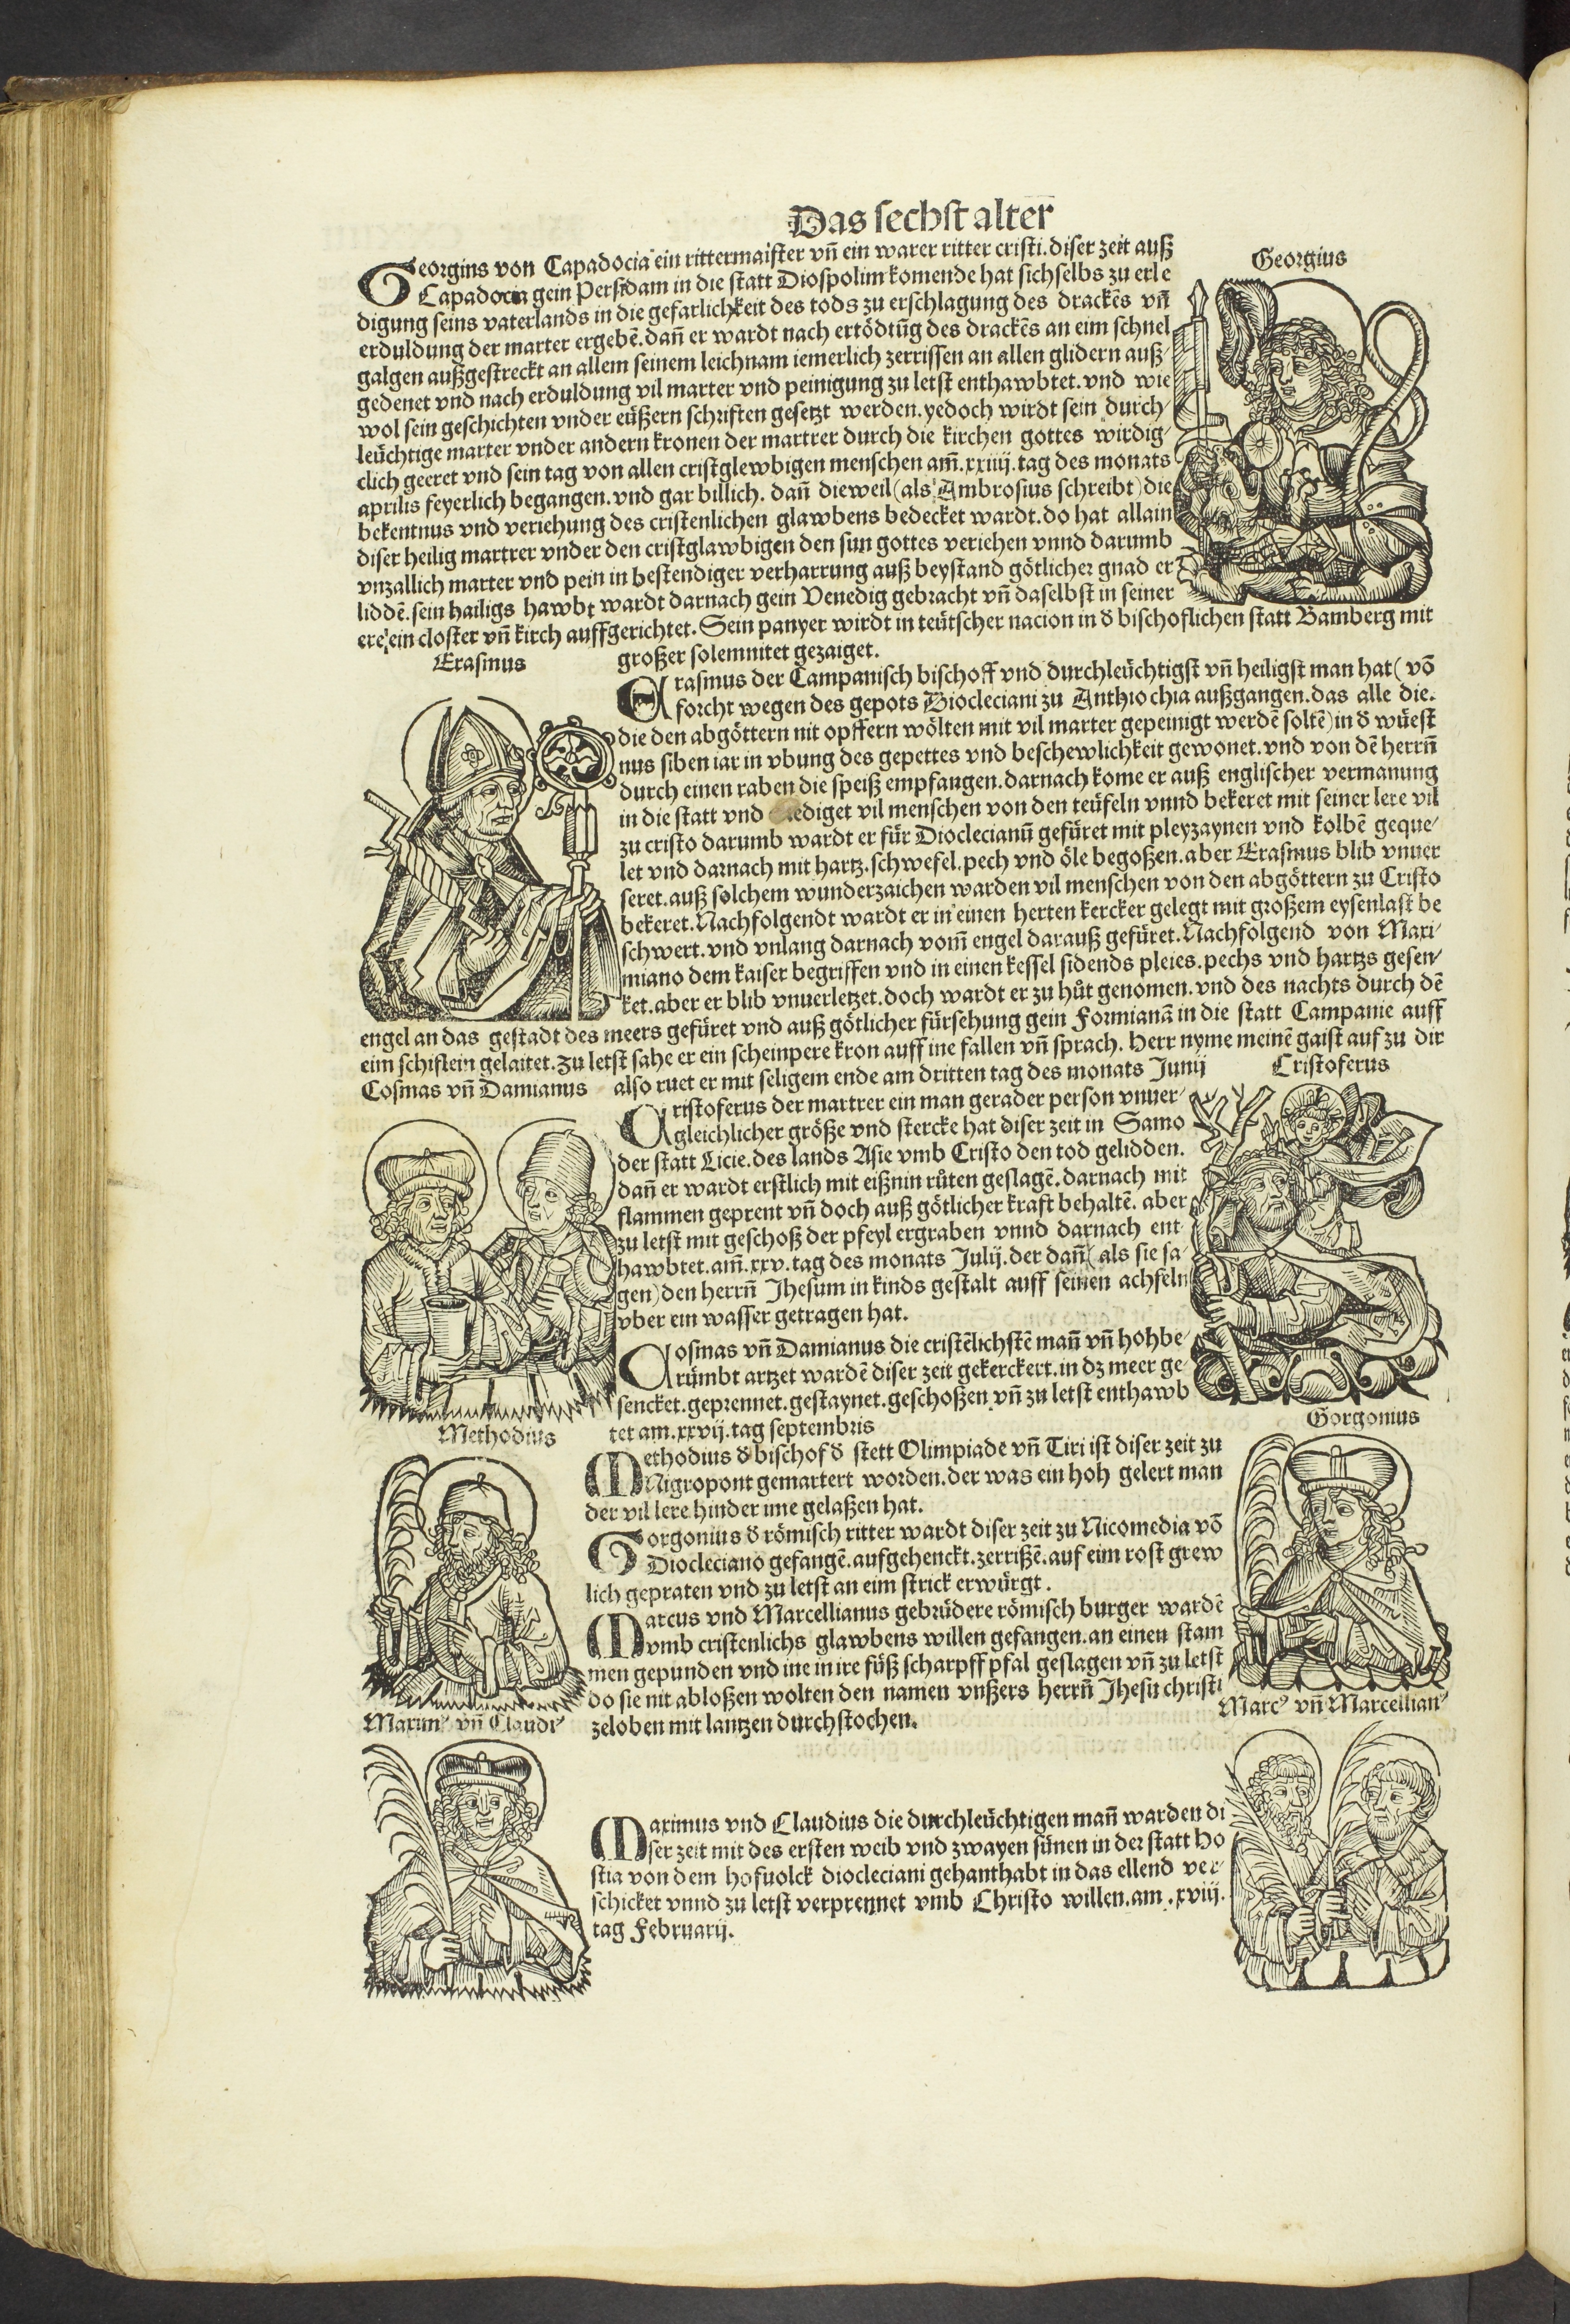 Das sechst alter
Georgius
Georgius von Capadocia ein rittermaister vn̄ ein warer ritter cristi. diser zeit auß
Capadocia gein Persidam in die statt Diospolim komende hat sichselbs zu erle
digung seins vaterlands in die gefarlichkeit des tods zu erschlagung des drackēs vn̄
erduldung der marter ergebē. dañ er wardt nach ertödtūg des drackēs an eim schnel
galgen außgestreckt an allem seinem leichnam iemerlich zerrissen an allen glidern auß-
gedenet vnd nach erduldung vil marter vnd peinigung zu letst enthawbtet. vnd wie
wol sein geschichten vnder eüßern schriften gesetzt werden. yedoch wirdt sein durch-
leüchtige marter vnder andern kronen der martrer durch die kirchen gottes wirdig-
clich geeret vnd sein tag von allen cristglewbigen menschen am̄. xxiiij. tag des monats
aprilis feyerlich begangen. vnd gar billich. dañ dieweil (als Ambrosius schreibt) die
bekentnus vnd veriehung des cristenlichen glawbens bedecket wardt. do hat allain
diser heilig martrer vnder den cristglawbigen den sun gottes veriehen vnnd darumb
vnzallich marter vnd pein in bestendiger verharrung auß beystand götlicher gnad er
liddē. sein hailigs hawbt wardt darnach gein Venedig gebracht vn̄ daselbst in seiner
ere ein closter vn̄ kirch auffgerichtet. Sein panyer wirdt in teütscher nacion in d̄ bischoflichen statt Bamberg mit
großer solemnitet gezaiget.
Erasmus
Erasmus der Campanisch bischoff vnd durchleüchtigst vn̄ heiligst man hat (vō
forcht wegen des gepots Diocleciani zu Anthiochia außgangen. das alle die.
die den abgöttern nit opffern wölten mit vil marter gepeinigt werdē soltē) in d̄ wüest
nus siben iar in vbung des gepettes vnd beschewlichkeit gewonet. vnd von dē herrn̄
durch einen raben die speiß empfangen. darnach kome er auß englischer vermanung
in die statt vnd erlediget vil menschen von den teüfeln vnnd bekeret mit seiner lere vil
zu cristo darumb wardt er für Dioclecianū gefüret mit pleyzaynen vnd kolbē geque-
let vnd darnach mit hartz. schwefel. pech vnd öle begoßen. aber Erasmus blib vnuer
seret. auß solchem wunderzaichen warden vil menschen von den abgöttern zu Cristo
bekeret. Nachfolgendt wardt er in einen herten kercker gelegt mit großem eysenlast be
schwert. vnd vnlang darnach vom̄ engel darauß gefüret. Nachfolgend von Maxi-
miano dem kaiser begriffen vnd in einen kessel sidends pleies. pechs vnd hartzs gesen-
ket. aber er blib vnuerletzet. doch wardt er zu hůt genomen. vnd des nachts durch dē
engel an das gestadt des meers gefüret vnd auß götlicher fürsehung gein Formianā in die statt Campanie auff
eim schiflein gelaitet. zu letst sahe er ein scheinpere kron auff ine fallen vn̄ sprach. Herr nyme meinē gaist auf zu dir
also ruet er mit seligem ende am dritten tag des monats Junij
Cosmas vn̄ Damianus
Cristoferus
Cristoferus der martrer ein man gerader person vnuer-
gleichlicher größe vnd stercke hat diser zeit in Samo
der statt Licie. des lands Asie vmb Cristo den tod gelidden.
dañ er wardt erstlich mit eißnin růten geslagē. darnach mit
flammen geprent vn̄ doch auß götlicher kraft behaltē. aber
zu letst mit geschoß der pfeyl ergraben vnnd darnach ent
hawbtet. am̄. xxv. tag des monats Julij. der dañ (als sie sa-
gen) den herrn̄ Jhesum in kinds gestalt auff seinen achseln
vber ein wasser getragen hat.
Cosmas vn̄ Damianus die cristēlichstē mañ vn̄ hohbe-
rümbt artzet wardē diser zeit gekerckert. in dz meer ge-
sencket. geprennet. gestaynet. geschoßen vn̄ zu letst enthawb
tet am. xxvij. tag septembris
Methodius
Gorgonius
Methodius d̄ bischof d̄ stett Olimpiade vn̄ Tiri ist diser zeit zu
Nigropont gemartert worden. der was ein hoh gelert man
der vil lere hinder ime gelaßen hat.
Gorgonius d̄ römisch ritter wardt diser zeit zu Nicomedia vō
Diocleciano gefangē. aufgehenckt. zerrißē. auf eim rost grew
lich gepraten vnd zu letst an eim strick erwürgt.
Marcus vnd Marcellianus gebrüdere römisch burger wardē
vmb cristenlichs glawbens willen gefangen. an einen stam
men gepunden vnd ine in ire füß scharpff pfal geslagen vn̄ zu letst
do sie nit abloßen wolten den namen vnßers herrn̄ Jhesu christi
zeloben mit lantzen durchstochen.
Maxim⁹ vn̄ Claudi⁹
Marc⁹ vn̄ Marcellian⁹
Maximus vnd Claudius die durchleüchtigen mañ warden di
ser zeit mit des ersten weib vnd zwayen sünen in der statt Ho
stia von dem hofuolck diocleciani gehanthabt in das ellend ver-
schicket vnnd zu letst verprennet vmb Christo willen. am. xviij.
tag Februarij.